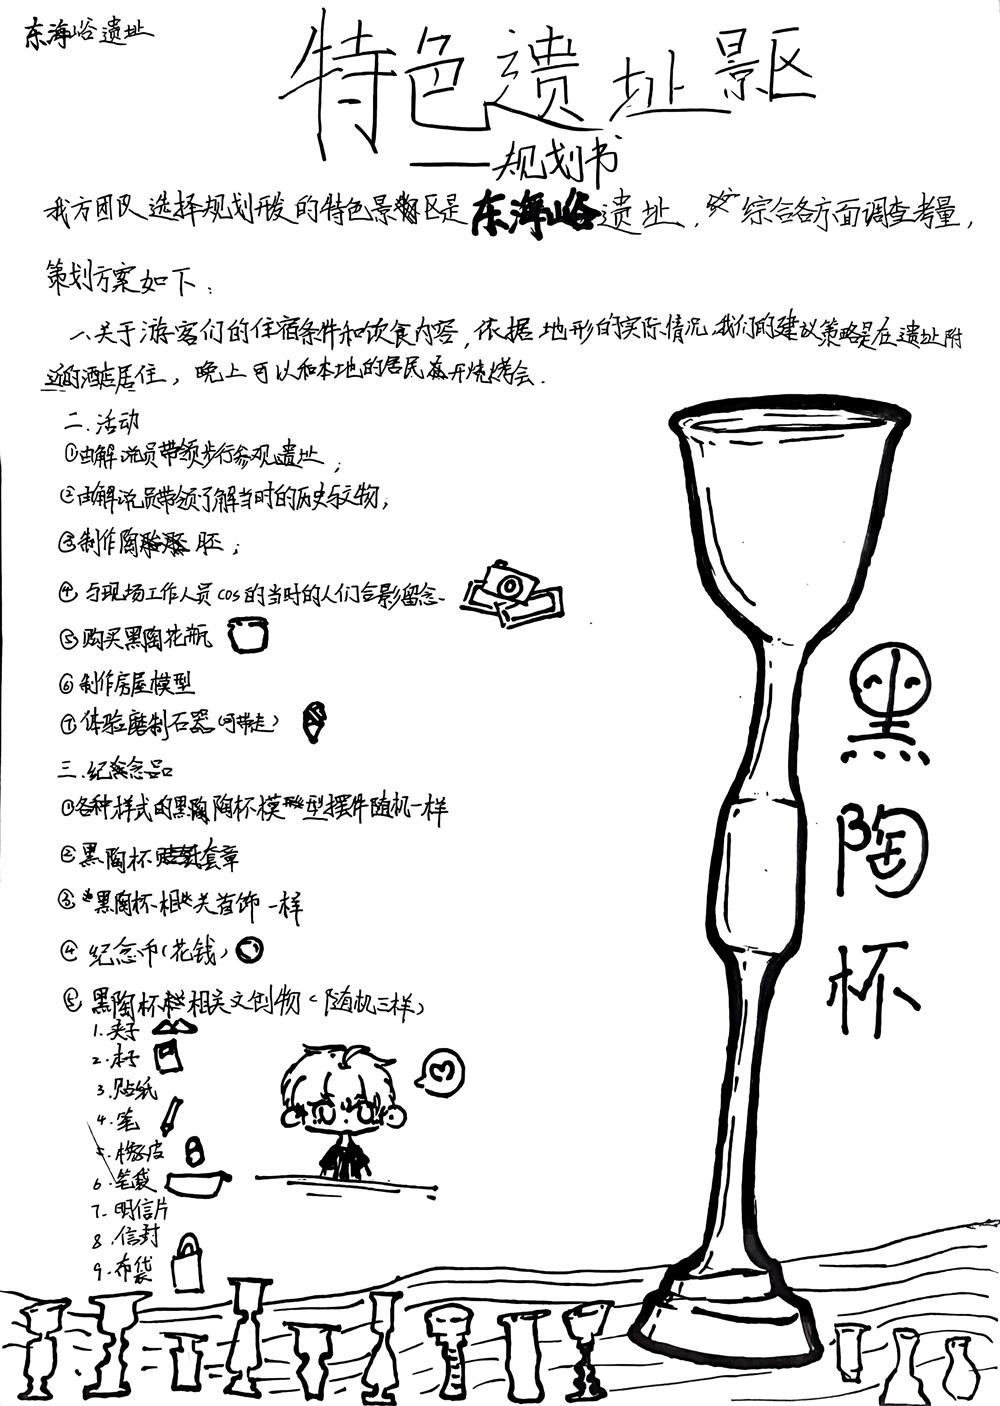 东海峪遗址
特色遗址景区
——规划书
我方团队选择规划开发的特色景区是东海峪遗址，综合各方面调查考量，
策划方案如下：
一、关于游客们的住宿条件和饮食内容，依据地形的实际情况，我们的建议策略是在遗址附
近的酒店居住，晚上可以和本地的居民召开烧烤会.
二.活动
①由解说员带领步行参观遗址；
②由解说员带领了解当时的历史与文物；
③制作陶胚；
④与现场工作人员cos的当时的人们合影留念.
⑤购买黑陶花瓶
⑥制作房屋模型
⑦体验磨制石器(可带走)
三.纪念品
①各种样式的黑陶陶杯模型摆件随机一样
②黑陶杯套章
③黑陶杯相关首饰一样
④纪念币(花钱)
⑤黑陶杯相关文创物(随机三样)
1.夹子
2.本子
3.贴纸
4.笔
5.橡皮
6.笔袋
7.明信片
8.信封
9.布袋
黑
陶
杯